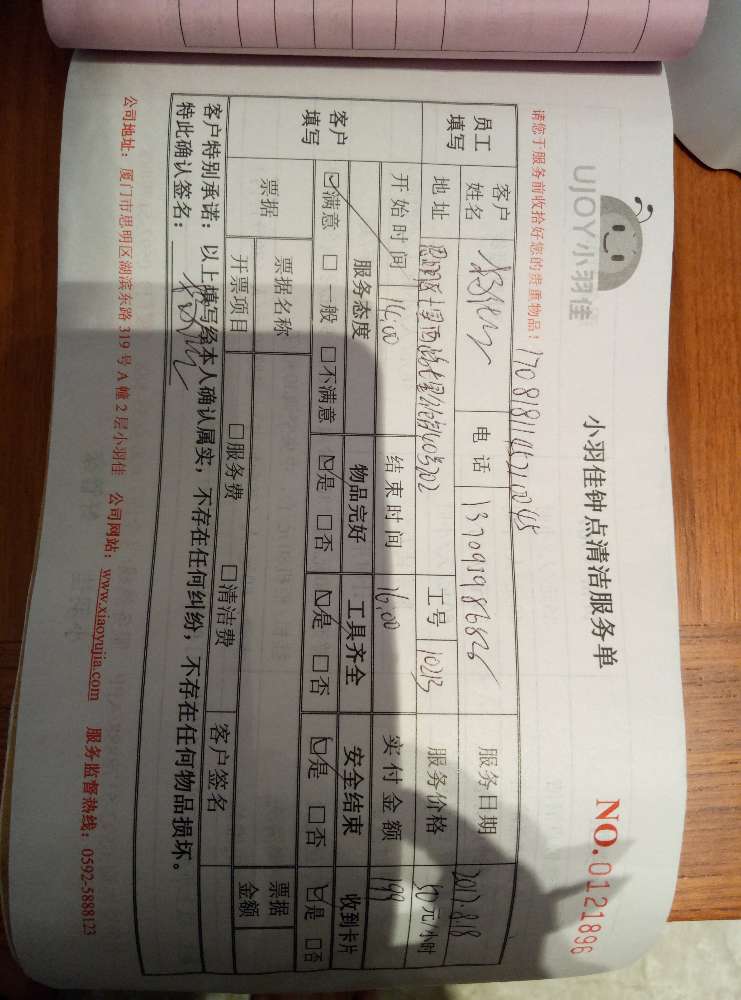 UJOY小羽佳
小羽佳钟点清洁服务单
NO.0121896
请您于服务前收拾好您的贵重物品！
员工填写 客户姓名 电话 服务日期 2017.8.18
地址 工号 10213 服务价格 50元/小时
客户填写 开始时间 14:00 结束时间 16:00 实付金额 199
服务态度 物品完好 工具齐全 安全结束 收到卡片
☑满意 □一般 □不满意 ☑是 □否 ☑是 □否 ☑是 □否 ☑是 □否
票据 票据名称 票据金额
开票项目 □服务费 □清洁费 客户签名
客户特别承诺：以上填写经本人确认属实，不存在任何纠纷，不存在任何物品损坏。
特此确认签名：
公司地址：厦门市思明区湖滨东路319号A幢2层小羽佳 公司网站：www.xiaoyujia.com 服务监督热线：0592-5888123